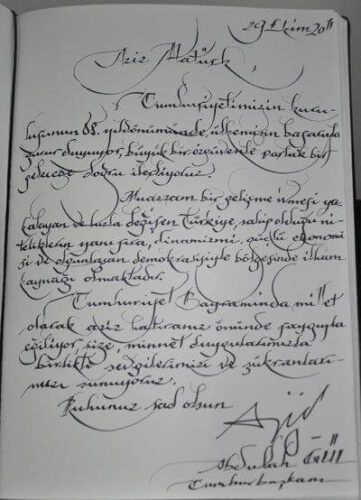 29 Ekim 2011
Aziz Atatürk,
Cumhuriyetimizin kuru-
luşunun 88. yıldönümünde, ülkemizin başarılarıyla
gurur duyuyor, büyük bir özgüvenle parlak bir
geleceğe doğru ilerliyoruz.
Muazzam bir gelişme ivmesi ya-
kalayan ve hızla değişen Türkiye, sahip olduğu ni-
teliklerin yanı sıra, dinamizmi, güçlü ekonomi-
si ve olgunlaşan demokrasisiyle bölgesinde ilham
kaynağı olmaktadır.
Cumhuriyet Bayramında millet
olarak aziz hatıranız önünde saygıyla
eğiliyor size, minnet duygularımızla
birlikte sevgilerimizi ve şükranları-
mızı sunuyoruz.
Ruhunuz şad olsun
Abdullah GÜL
Cumhurbaşkanı